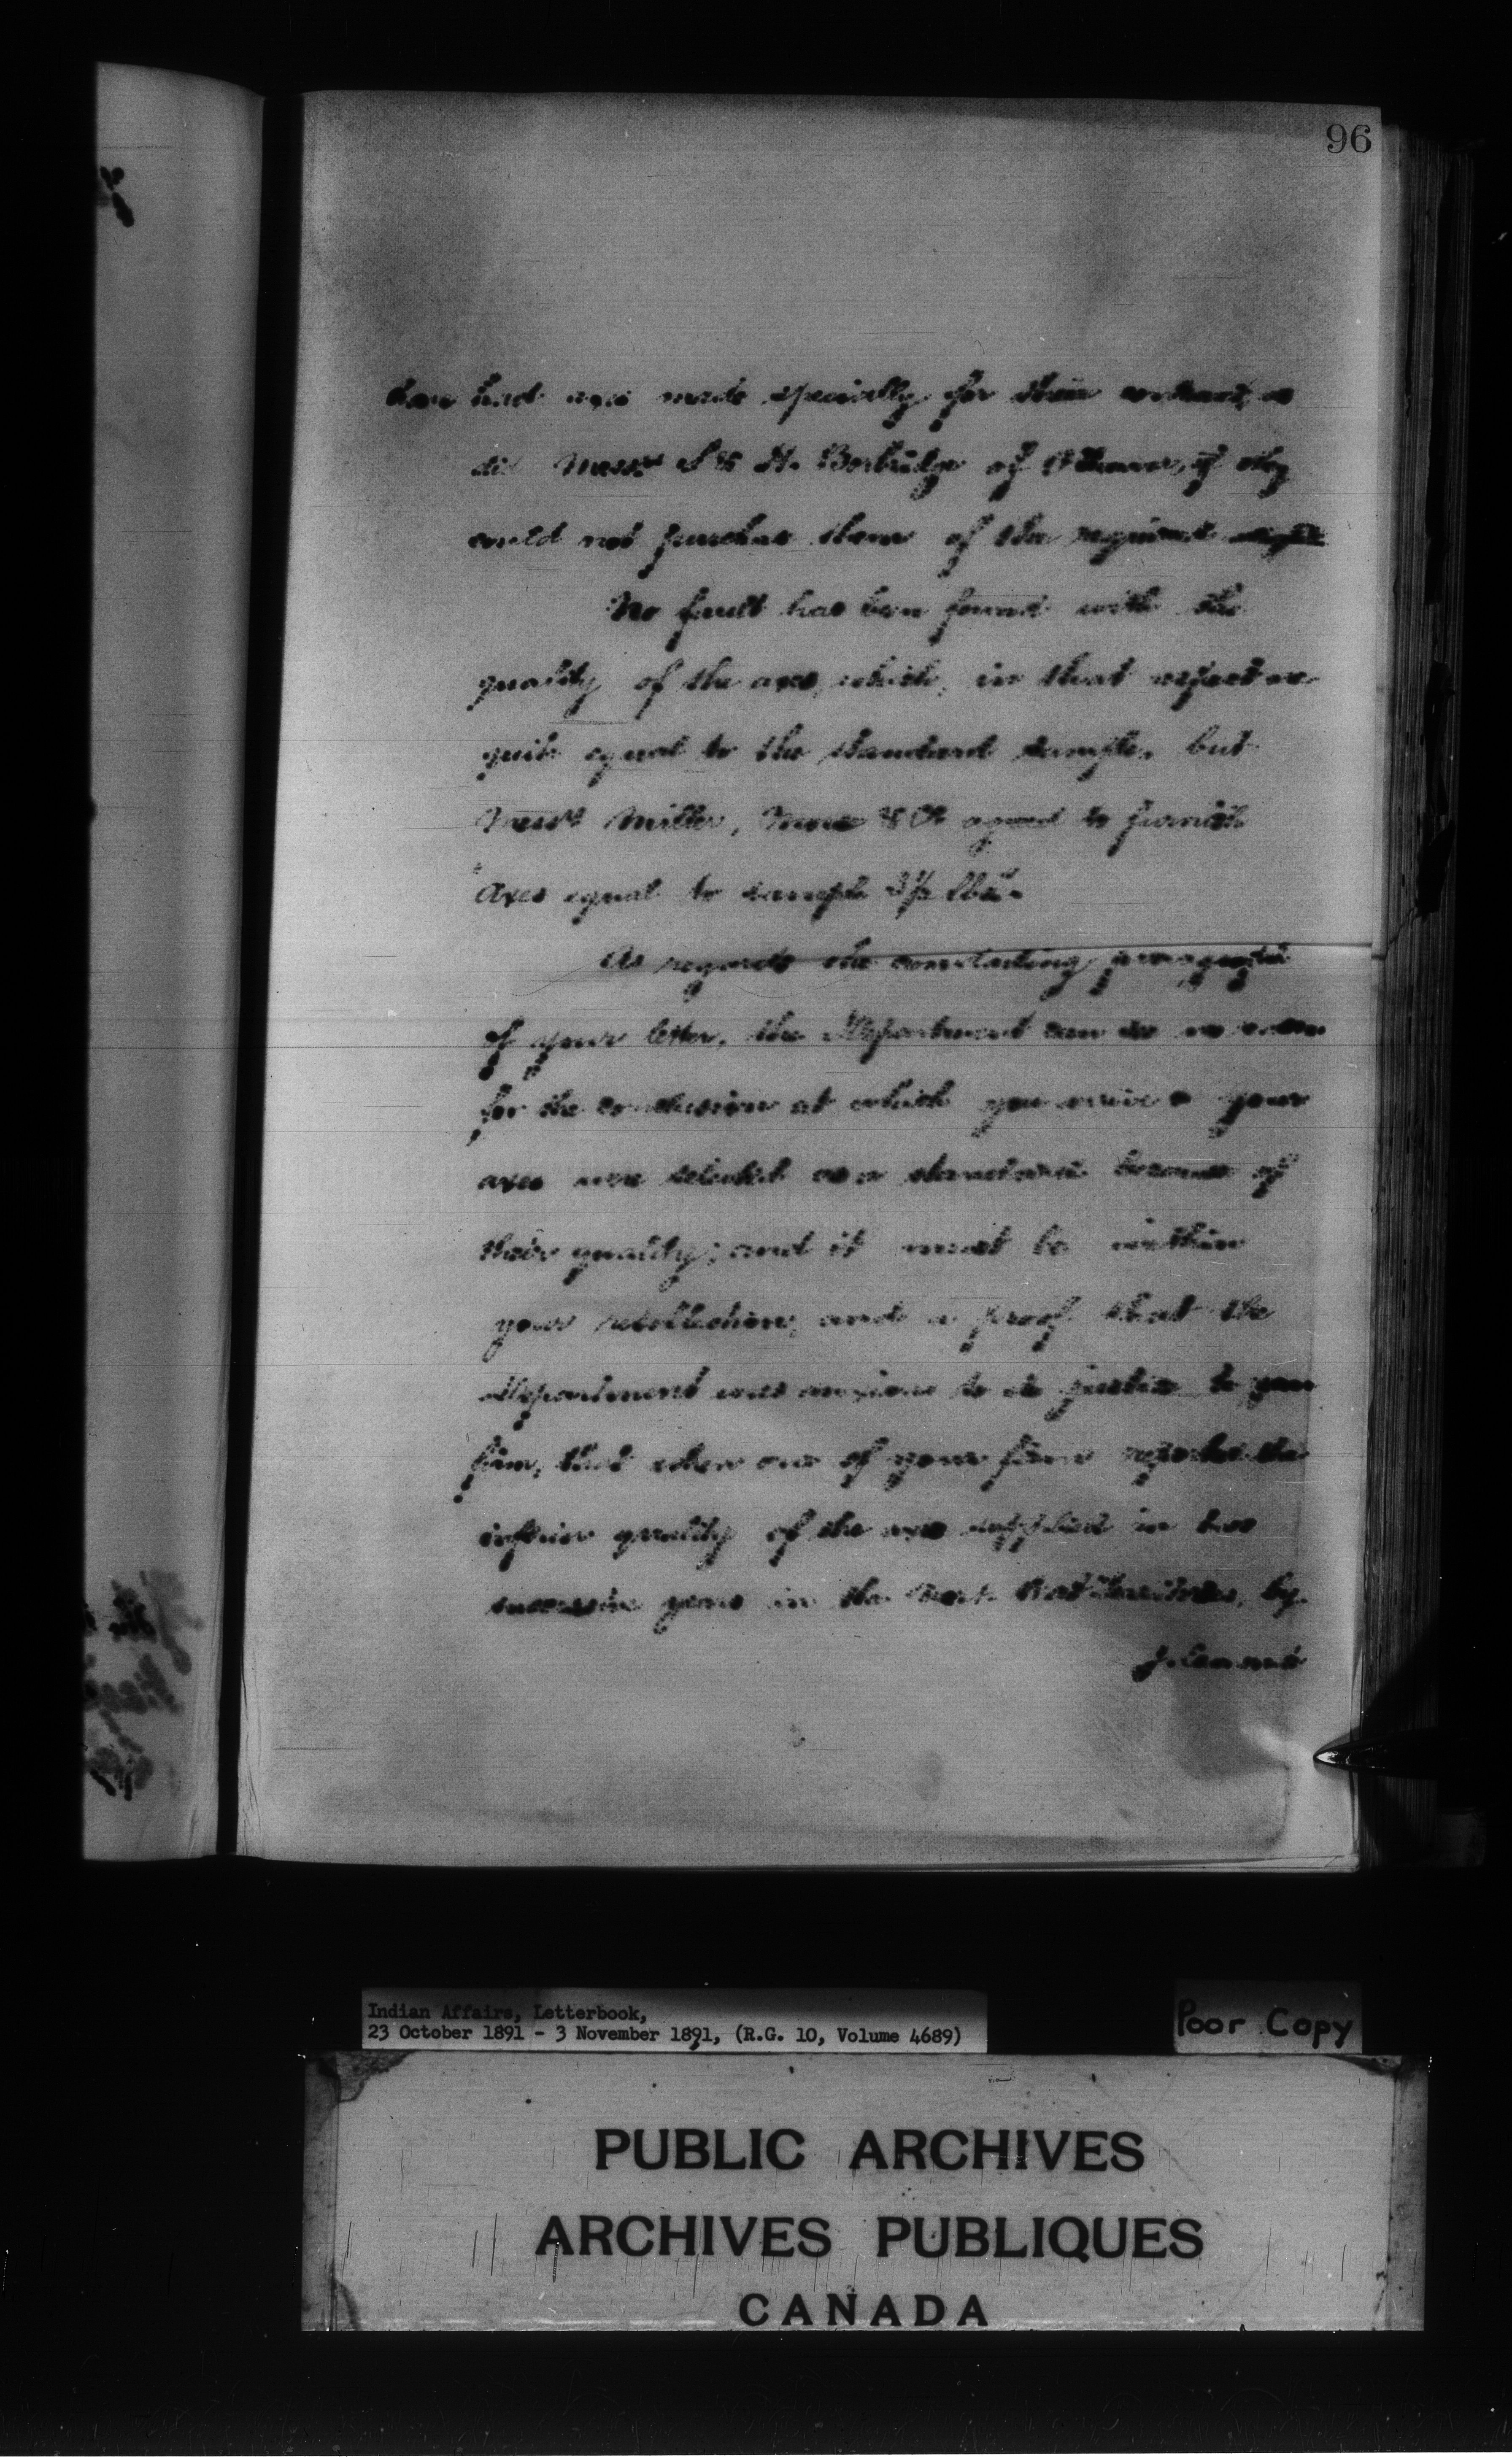 96
have had axes made specially for their contract, as
did Messrs S & H. Borbridge of Ottawa, if they
could not purchase them of the required weight
No fault has been found with the
quality of the axes, which, in that respect are
quite equal to the standard sample, but
Messrs Miller, Morse & Co agreed to furnish
"Axes equal to sample 3½ lbs"
As regards the concluding paragraph
of your letter, the Department can see no reason
for the conclusion at which you arrive as your
axes were selected as a standard because of
their quality; and it must be within
your recollection, and a proof that the
Department was anxious to do justice to your
firm, that when one of your firm reported the
inferior quality of the axes supplied in two
successive years in the North West Territories, by
Indian Affairs, Letterbook,
23 October 1891 - 3 November 1891, (R.G. 10, Volume 4689)
Poor Copy
PUBLIC ARCHIVES
ARCHIVES PUBLIQUES
CANADA